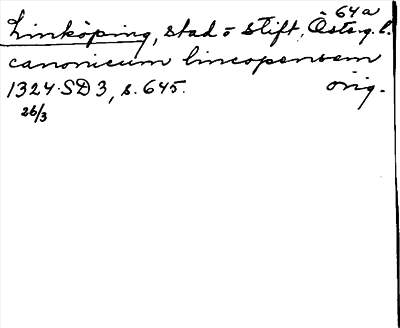 64a
Linköping, stad o stift, Österg. l.
canonicum lincopensem
1324 SD 3, s. 645. orig.
26/3